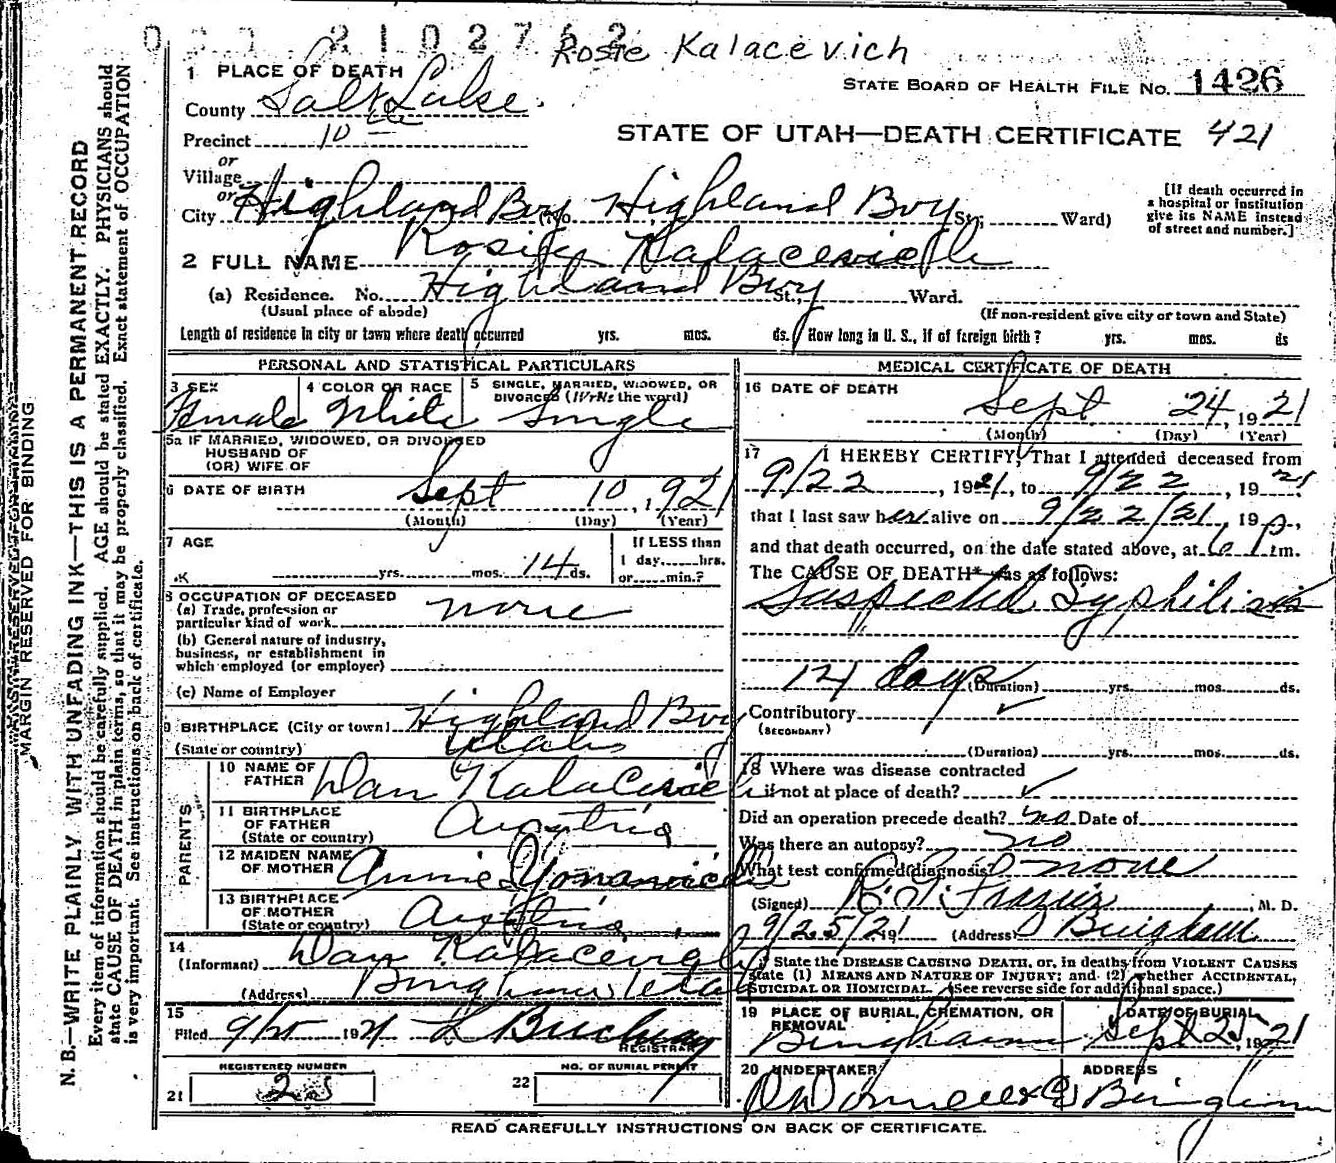 2102762 Rosie Kalacevich
1 PLACE OF DEATH
STATE BOARD OF HEALTH FILE NO. 1426
County Salt Lake
Precinct 10
STATE OF UTAH—DEATH CERTIFICATE 421
or
Village
or
City Highland Boy (No. Highland Boy St.; Ward)
[If death occurred in
a hospital or institution
give its NAME instead
of street and number.]
2 FULL NAME Kalacevich
(a) Residence. No. Highland Boy St., Ward.
(Usual place of abode) (If non-resident give city or town and State)
Length of residence in city or town where death occurred yrs. mos. ds. How long in U. S., if of foreign birth? yrs. mos. ds
PERSONAL AND STATISTICAL PARTICULARS
3 SEX 4 COLOR OR RACE 5 SINGLE, MARRIED, WIDOWED, OR
DIVORCED (Write the word)
Female White Single
5a IF MARRIED, WIDOWED, OR DIVORCED
HUSBAND OF
(OR) WIFE OF
6 DATE OF BIRTH Sept 10, 1921
(Month) (Day) (Year)
7 AGE yrs. mos. 14 ds.
If LESS than
1 day, hrs.
or min.?
8 OCCUPATION OF DECEASED
(a) Trade, profession or
particular kind of work none
(b) General nature of industry,
business, or establishment in
which employed (or employer)
(c) Name of Employer
9 BIRTHPLACE (City or town) Highland Boy
(State or country) Utah
PARENTS
10 NAME OF
FATHER Dan Kalacevich
11 BIRTHPLACE
OF FATHER
(State or country) Austria
12 MAIDEN NAME
OF MOTHER Annie
13 BIRTHPLACE
OF MOTHER
(State or country) Austria
14
(Informant) Dan Kalacevich
(Address) Bingham Utah
15
Filed 9/25 1921
REGISTRAR
REGISTERED NUMBER
21
NO. OF BURIAL PERMIT
22
MEDICAL CERTIFICATE OF DEATH
16 DATE OF DEATH Sept 24, 1921
(Month) (Day) (Year)
17 I HEREBY CERTIFY, That I attended deceased from
9/22, 1921, to 9/22, 1921
that I last saw her alive on 9/22/21, 19
and that death occurred, on the date stated above, at 6 P m.
The CAUSE OF DEATH* was as follows:
Suspected Syphilis
14 days (Duration) yrs. mos. ds.
Contributory
(SECONDARY)
(Duration) yrs. mos. ds.
18 Where was disease contracted
if not at place of death?
Did an operation precede death? no Date of
Was there an autopsy? no
What test confirmed diagnosis? none
(Signed) Frazier, M. D.
9/25/21 19 (Address) Bingham
* State the DISEASE CAUSING DEATH, or, in deaths from VIOLENT CAUSES
state (1) MEANS AND NATURE OF INJURY; and (2) whether ACCIDENTAL,
SUICIDAL OR HOMICIDAL. (See reverse side for additional space.)
19 PLACE OF BURIAL, CREMATION, OR
REMOVAL
Bingham
DATE OF BURIAL
Sept 25, 1921
20 UNDERTAKER O'Donnell & Co
ADDRESS Bingham
READ CAREFULLY INSTRUCTIONS ON BACK OF CERTIFICATE.
MARGIN RESERVED FOR BINDING
N. B.—WRITE PLAINLY WITH UNFADING INK—THIS IS A PERMANENT RECORD
Every item of information should be carefully supplied. AGE should be stated EXACTLY. PHYSICIANS should
state CAUSE OF DEATH in plain terms, so that it may be properly classified. Exact statement of OCCUPATION
is very important. See instructions on back of certificate.